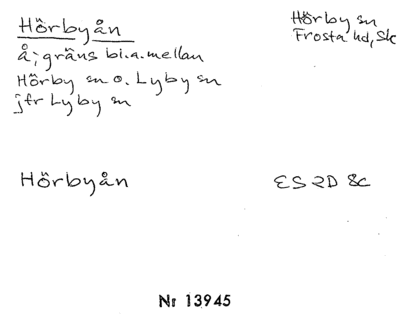 Hörbyån
Hörby sn
Frosta hd, Sk
å; gräns bl.a. mellan
Hörby sn o. Lyby sn
jfr Lyby sn
Hörbyån
ES 2D 8c
Nr 13945